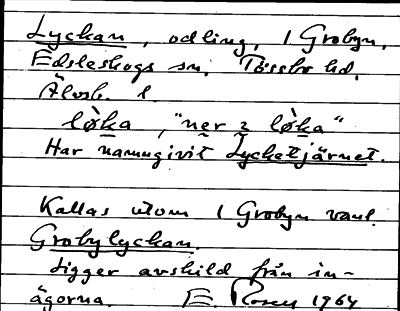 Lyckan, odling, i Grobyn,
Edsleskogs sn. Tössbo hd.
Älvsb. l.
lø̀ka, "ner i lø̀ka"
Har namngivit Lycketjärnet.
Kallas utom i Grobyn vanl.
Grobylyckan.
Ligger avskild från in-
ägorna. E. Rosen 1964